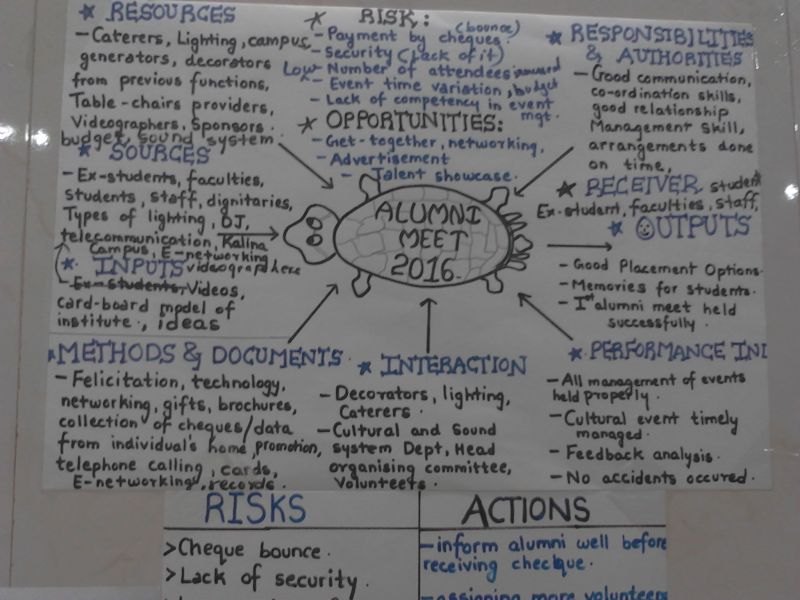 RESOURCES
- Caterers, Lighting, campus,
generators, decorators
from previous functions,
Table-chairs providers,
Videographers, Sponsors.
budget, sound system.
SOURCES
- Ex-students, faculties,
students, staff, dignitaries,
Types of lighting, DJ,
telecommunication, Kalina
Campus, E-networking
videographere
INPUTS
- Ex-students, Videos,
card-board model of
institute., ideas
RISK:
- Payment by cheques. (bounce)
- Security (Lack of it)
Low - Number of attendees
- Event time variation, budget
- Lack of competency in event
mgt.
OPPORTUNITIES:
- Get-together, networking,
- Advertisement
- Talent showcase.
ALUMNI
MEET
2016.
RESPONSIBILITIES
& AUTHORITIES
- Good communication,
co-ordination skills,
good relationship
Management skill,
arrangements done
on time,
RECEIVER student
Ex-student, faculties, staff,
OUTPUTS
- Good Placement Options.
- Memories for students.
- Ist alumni meet held
successfully.
METHODS & DOCUMENTS.
- Felicitation, technology,
networking, gifts, brochures,
collection of cheques/data
from individual's home, promotion,
telephone calling, cards,
E-networkings, records.
INTERACTION
- Decorators, lighting,
Caterers.
- Cultural and Sound
system Dept, Head
organising committee,
Volunteers.
PERFORMANCE IND
- All management of events
held properly.
- Cultural event timely
managed.
- Feedback analysis.
- No accidents occured.
RISKS
> Cheque bounce.
> Lack of security.
ACTIONS
- inform alumni well before
receiving checque.
- assigning more volunteers